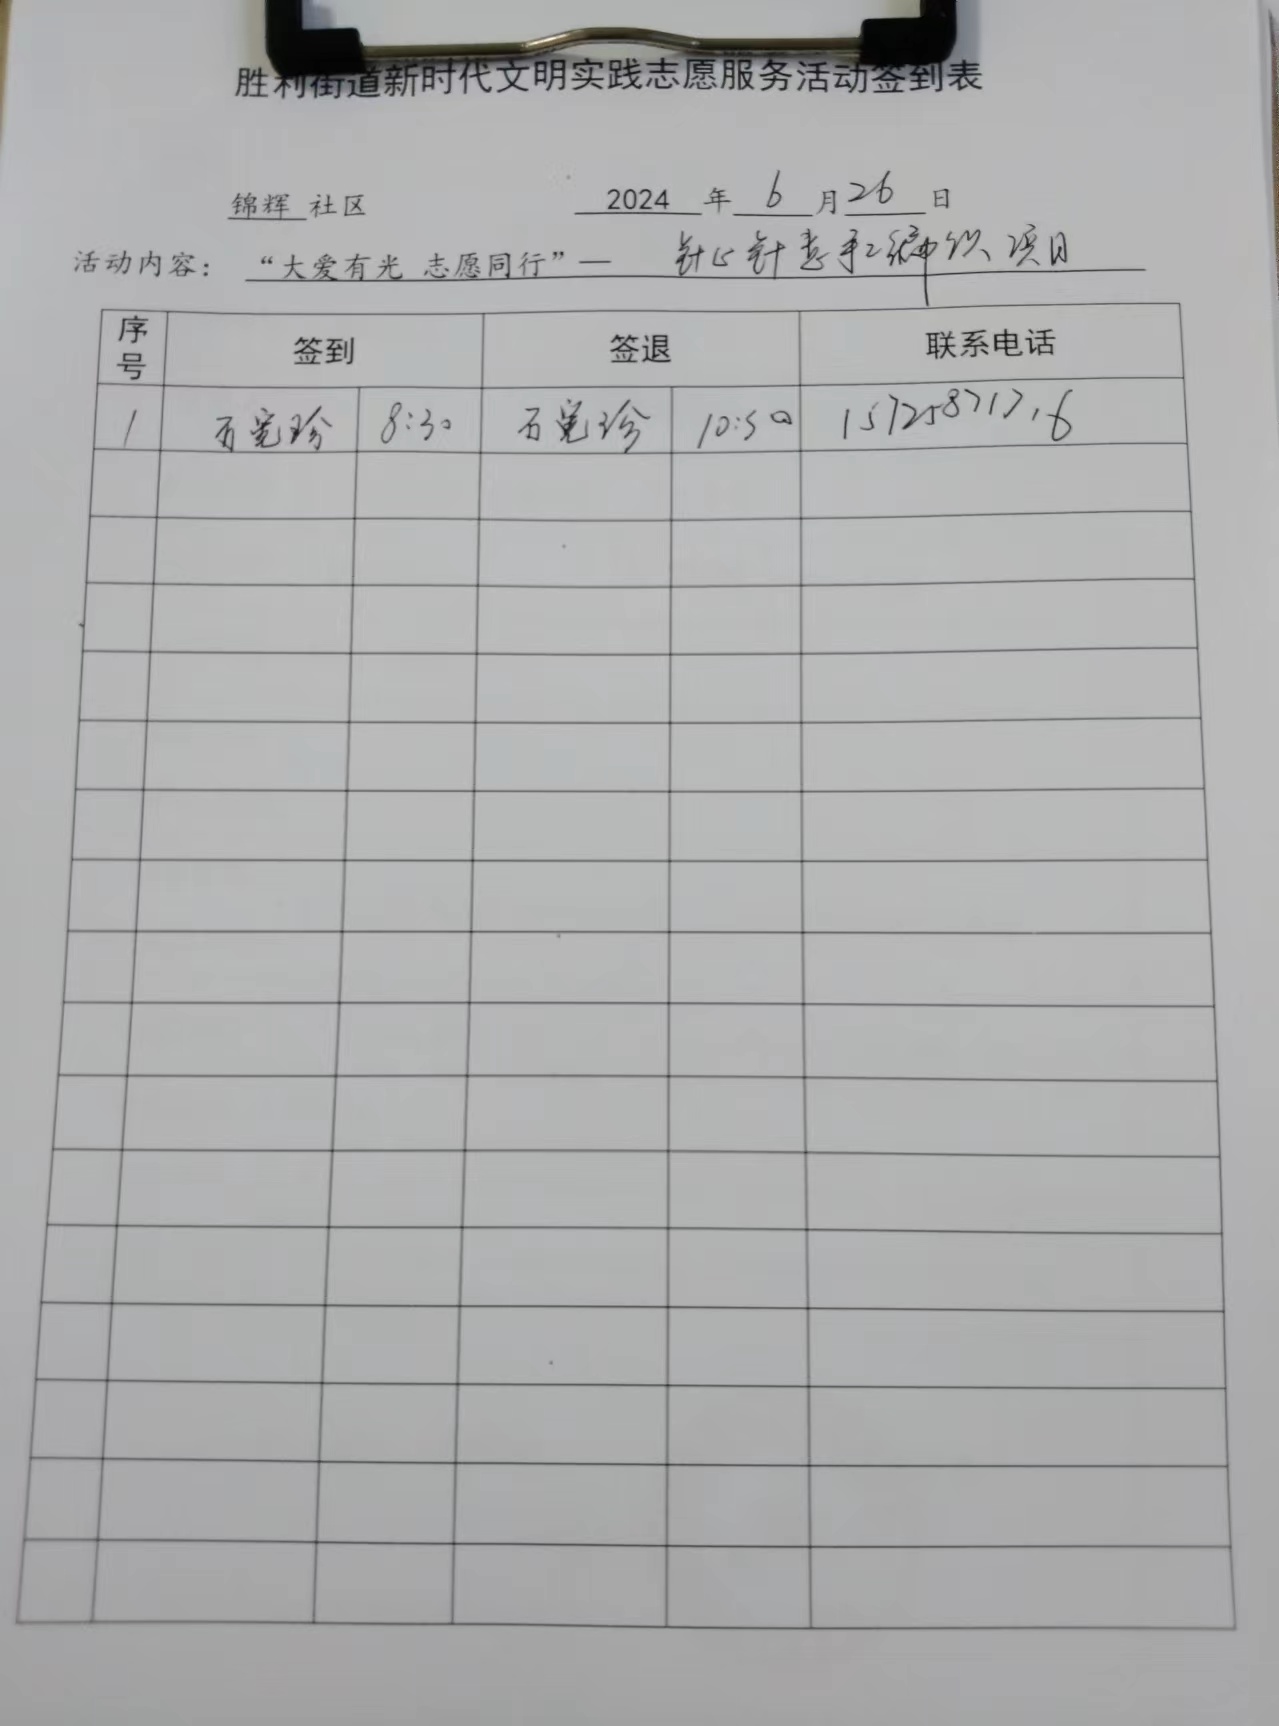 胜利街道新时代文明实践志愿服务活动签到表
锦辉 社区 2024 年 6 月 26 日
活动内容： “大爱有光 志愿同行”— 针心针意手工编织项目
序号 签到 签退 联系电话
1 8:30 10:30